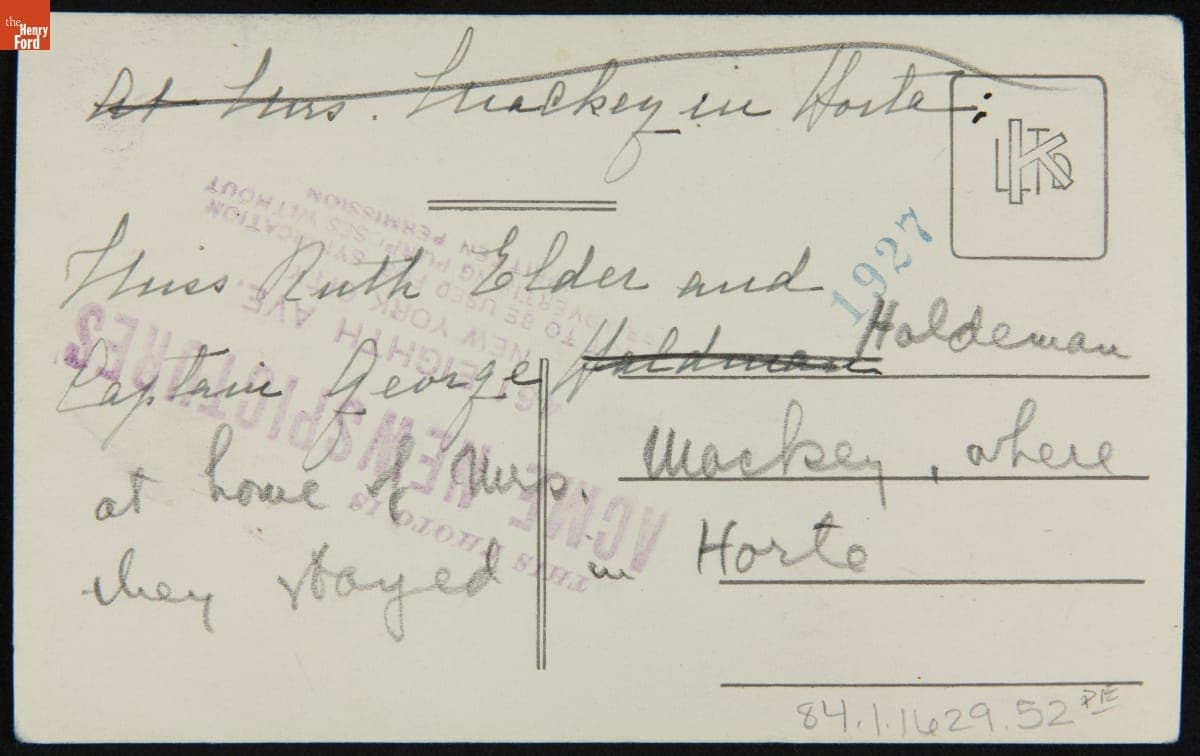 the
Henry
Ford
At Mrs. Mackey in Horta;
LKTD
1927
Miss Ruth Elder and
Captain George Haldman Haldeman
at home of Mrs. Mackey, where
they stayed in Horta
THIS PHOTO IS
ACME NEWSPICTURES
EIGHTH AVE.
NEW YORK CITY
TO BE USED FOR SYNDICATION
ADVERTISING PURPOSES WITHOUT
WRITTEN PERMISSION
84.1.1629.52 PE